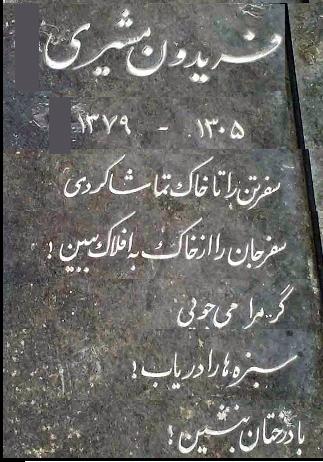 فریدون مشیری
۱۳۰۵ - ۱۳۷۹
سفرتن را تا خاک تماشا کردی
سفرجان را از خاک به افلاک ببین !
گر مرا می جویی
سبزه ها را دریاب !
با درختان بنشین !